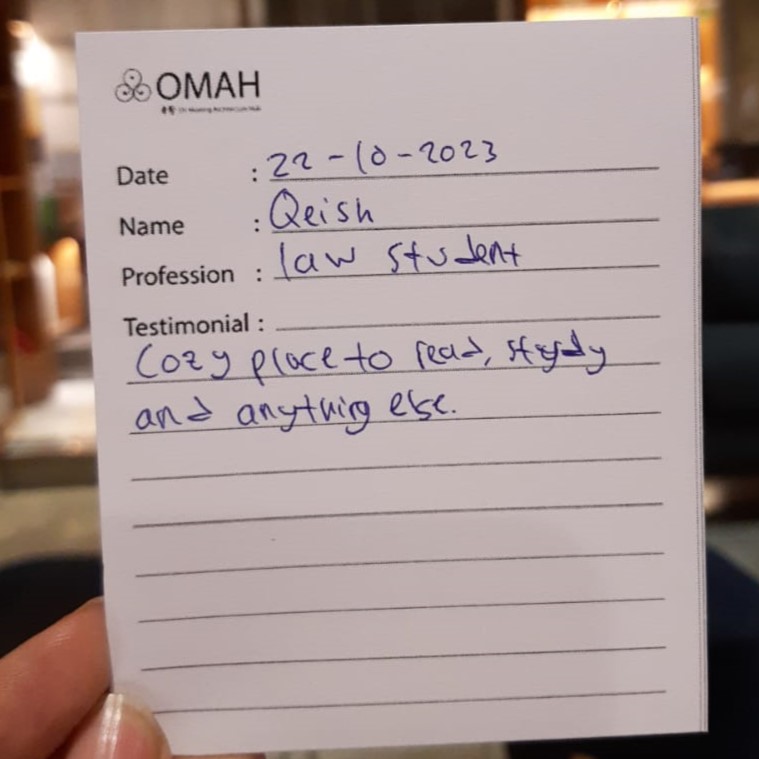 OMAH
Date : 22-10-2023
Name : Qeish
Profession : law student
Testimonial :
Cozy place to read, study
and anything else.